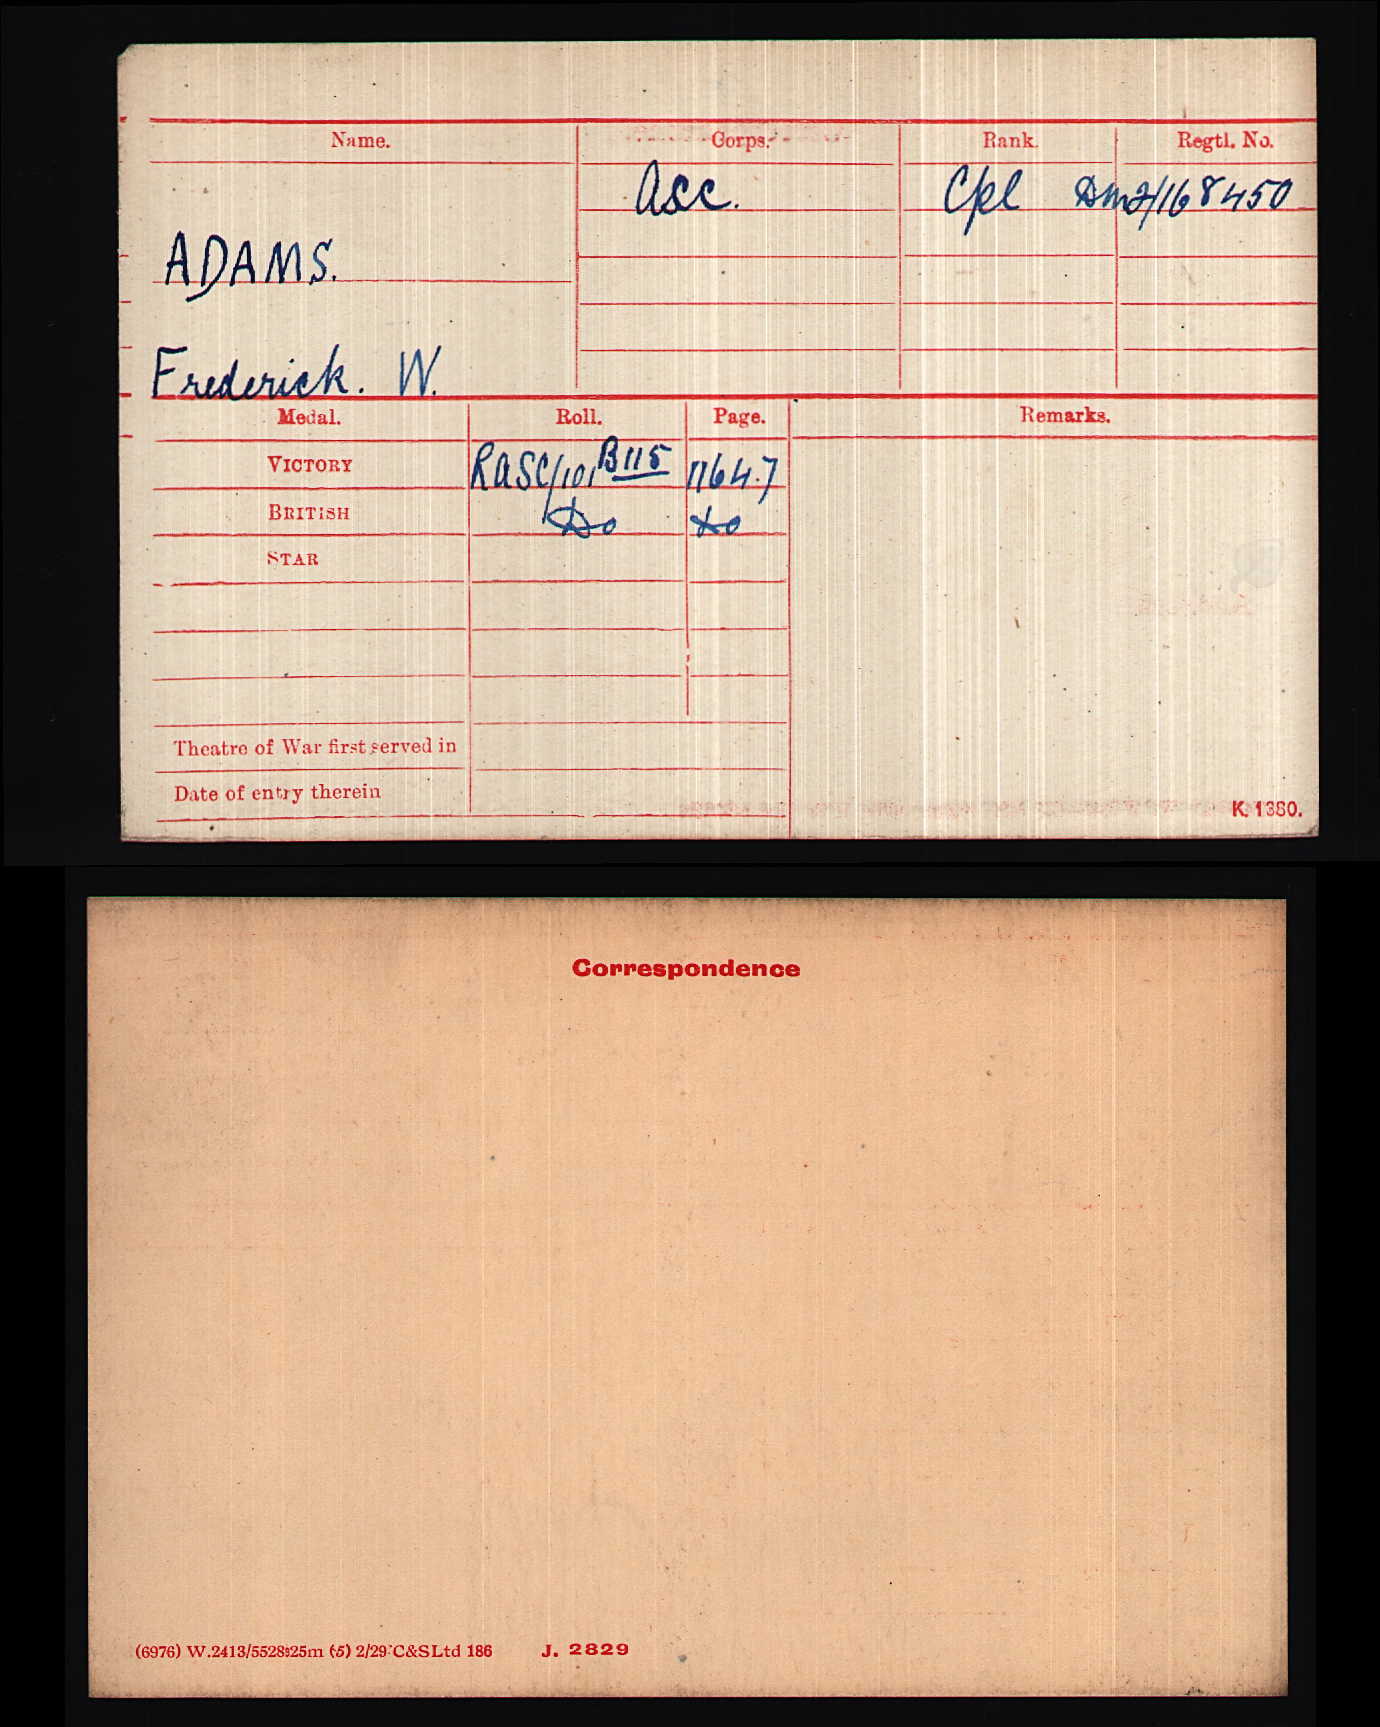 Name. Corps. Rank. Regtl. No.
ASC. Cpl DM2/168450
ADAMS.
Frederick. W.
Medal. Roll. Page. Remarks.
VICTORY RASC/101B115 11647
BRITISH Do Do
STAR
Theatre of War first served in
Date of entry therein
K. 1380.
Correspondence
(6976) W.2413/5528 25m (5) 2/29 C&SLtd 186 J. 2829